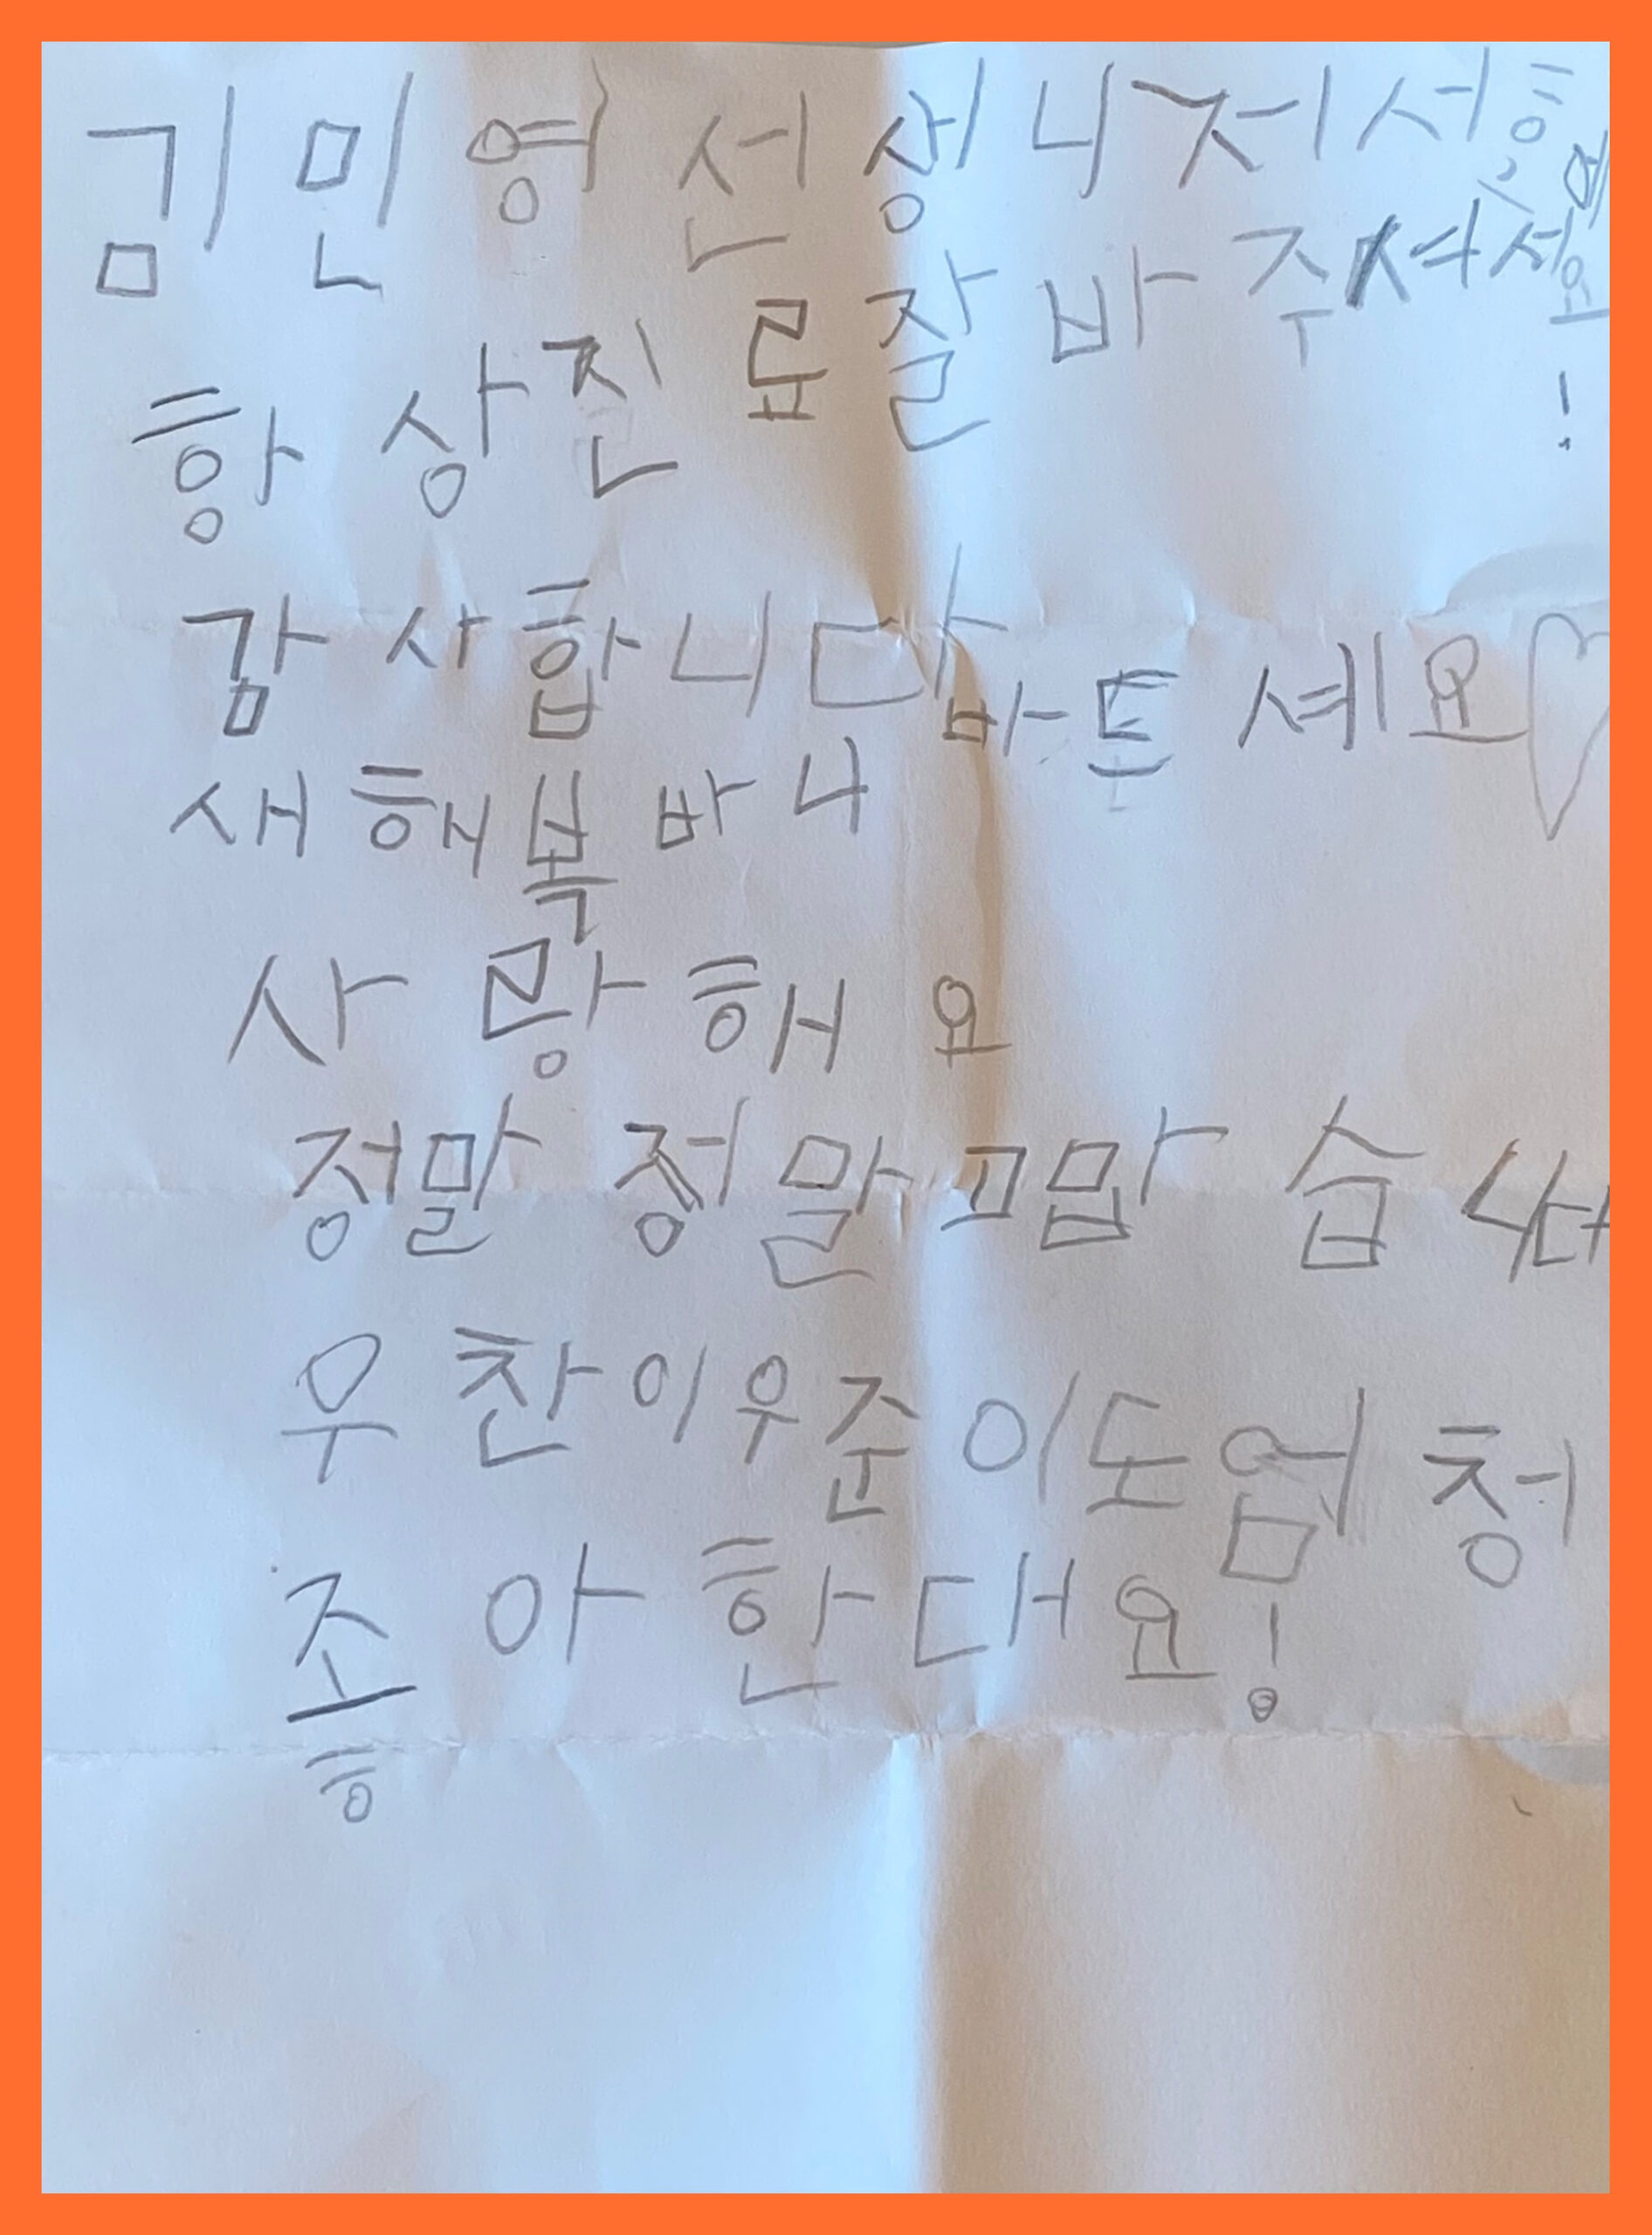 김민영선생니저서흥예요!
항상진료잘바주셔서
감사합니다
새해복바나바드세요
사랑해요
정말정말고맙습니다
우찬이우준이도엄청
조아한대요!
ㅎ